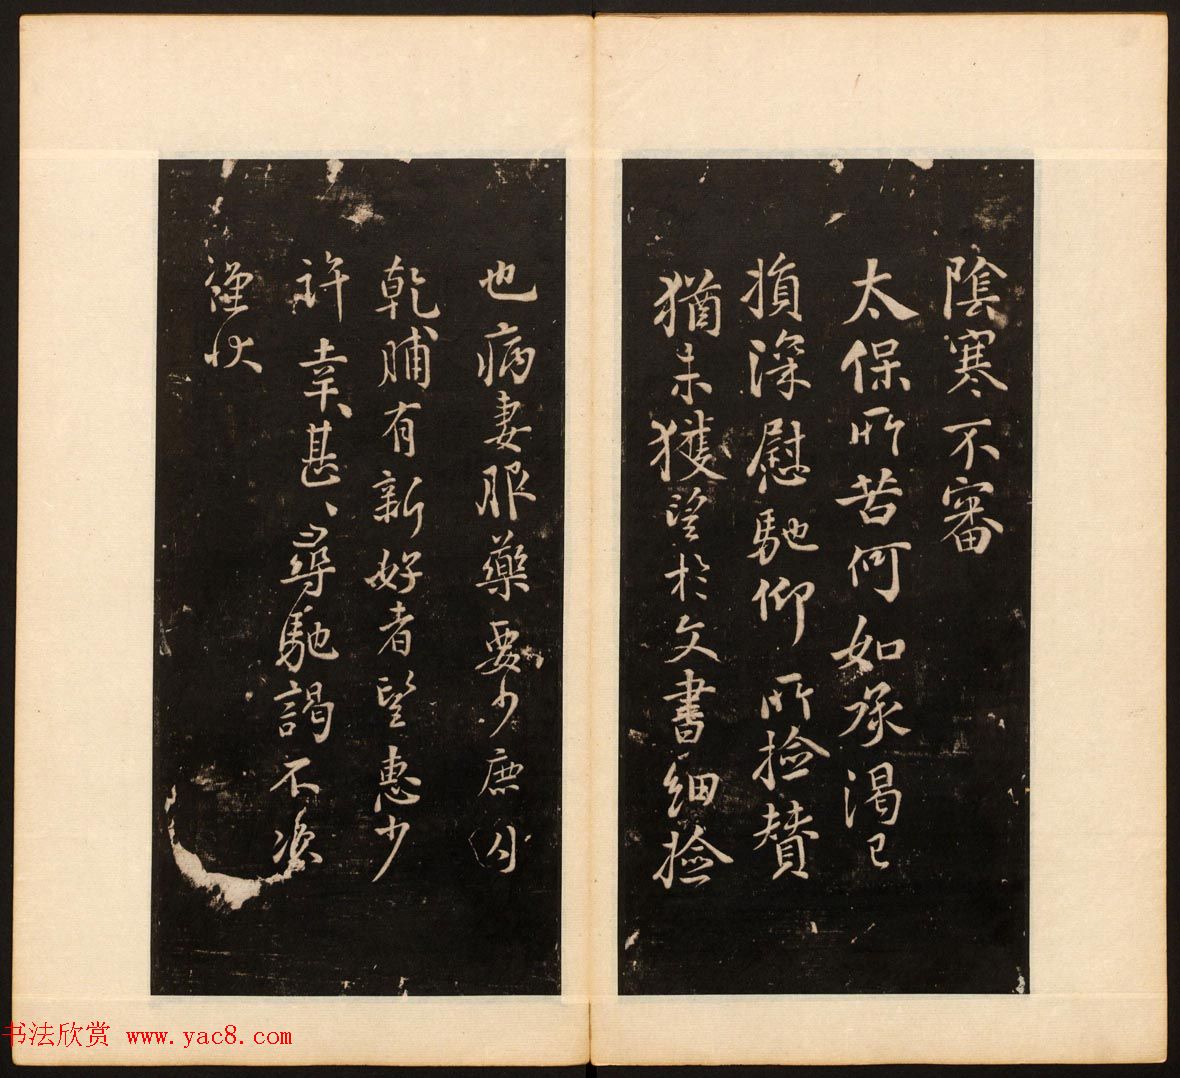 陰寒不審
太保所苦何如承渴已
損深慰馳仰所撿賛
猶未獲望於文書細撿
也病妻服藥要少鹿肉
乾脯有新好者望惠少
許幸甚、尋馳謁不次
謹狀
书法欣赏 www.yac8.com